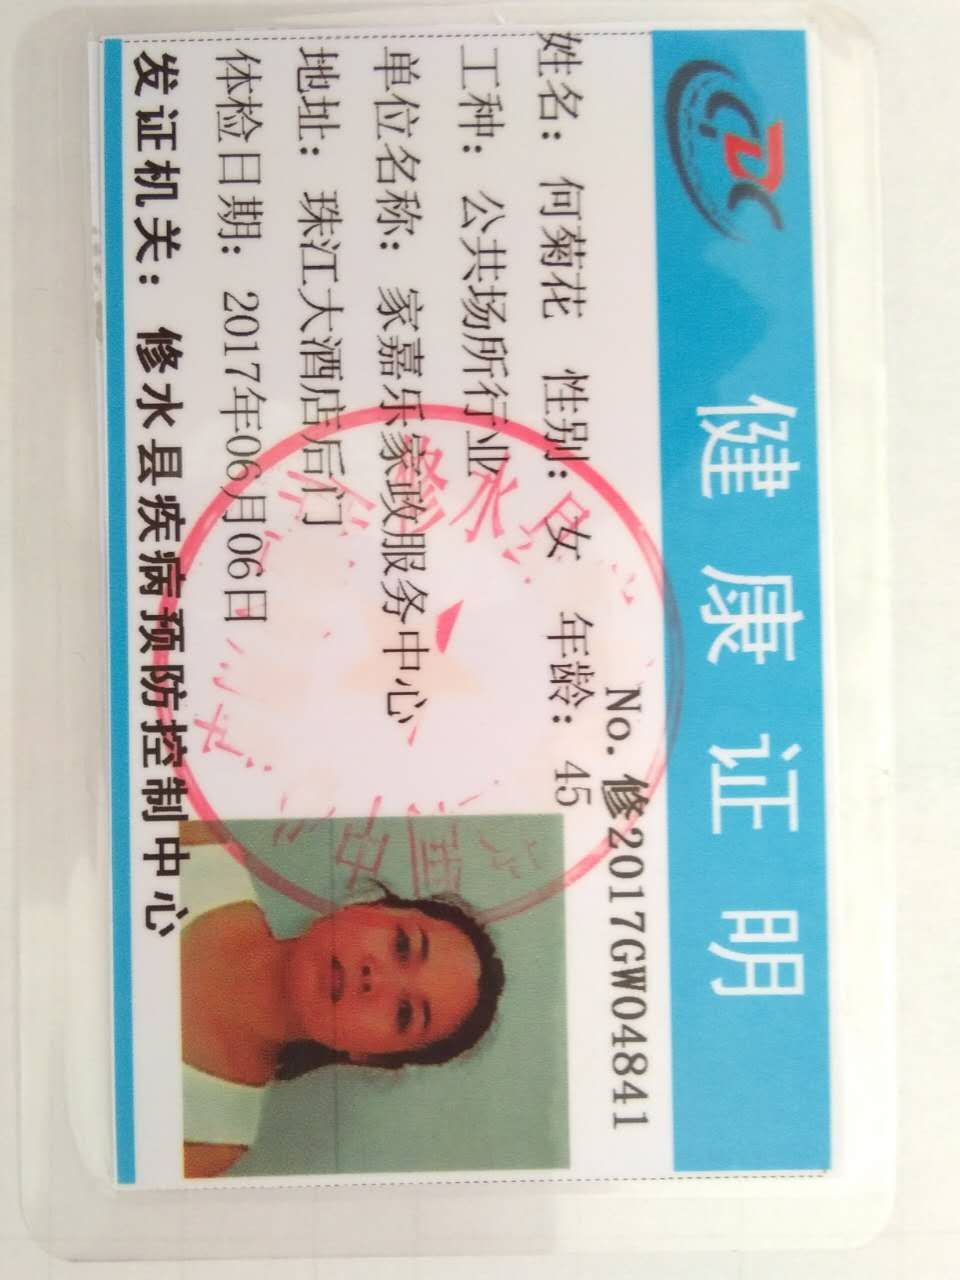 CDC
健康证明
No.修2017GW04841
姓名：何菊花 性别：女 年龄：45
工种：公共场所行业
单位名称：家嘉乐家政服务中心
地址：珠江大酒店后门
体检日期：2017年06月06日
发证机关：修水县疾病预防控制中心